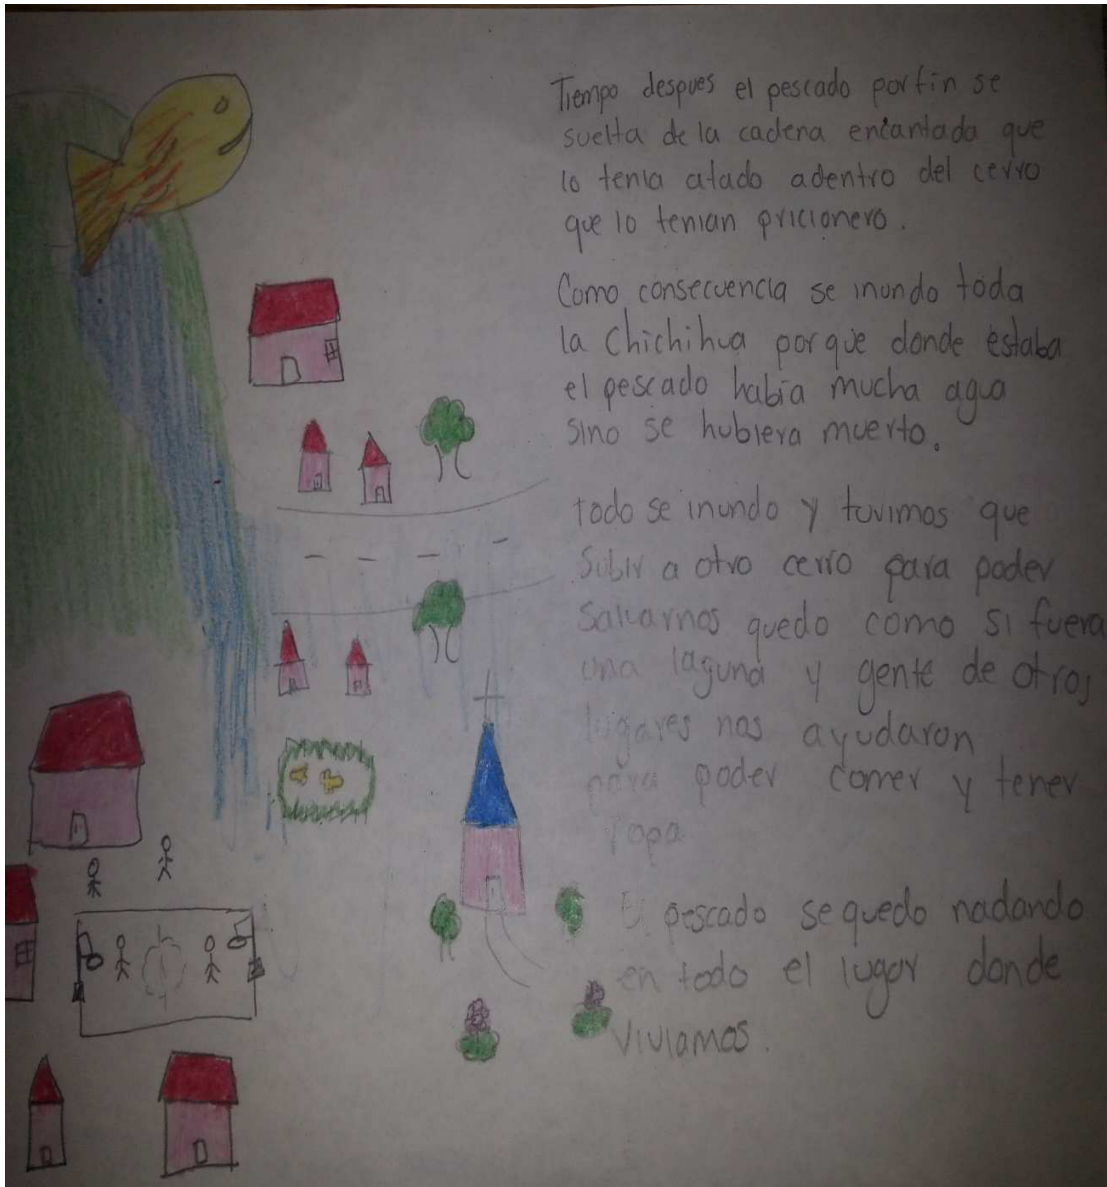 Tiempo despues el pescado por fin se
suelta de la cadena encantada que
lo tenia atado adentro del cerro
que lo tenian pricionero.
Como consecuencia se inundo toda
la Chichihua porque donde estaba
el pescado había mucha agua
sino se hubiera muerto.
todo se inundo y tuvimos que
subir a otro cerro para poder
salvarnos quedo como si fuera
una laguna y gente de otros
lugares nos ayudaron
para poder comer y tener
ropa
El pescado se quedo nadando
en todo el lugar donde
viviamos.